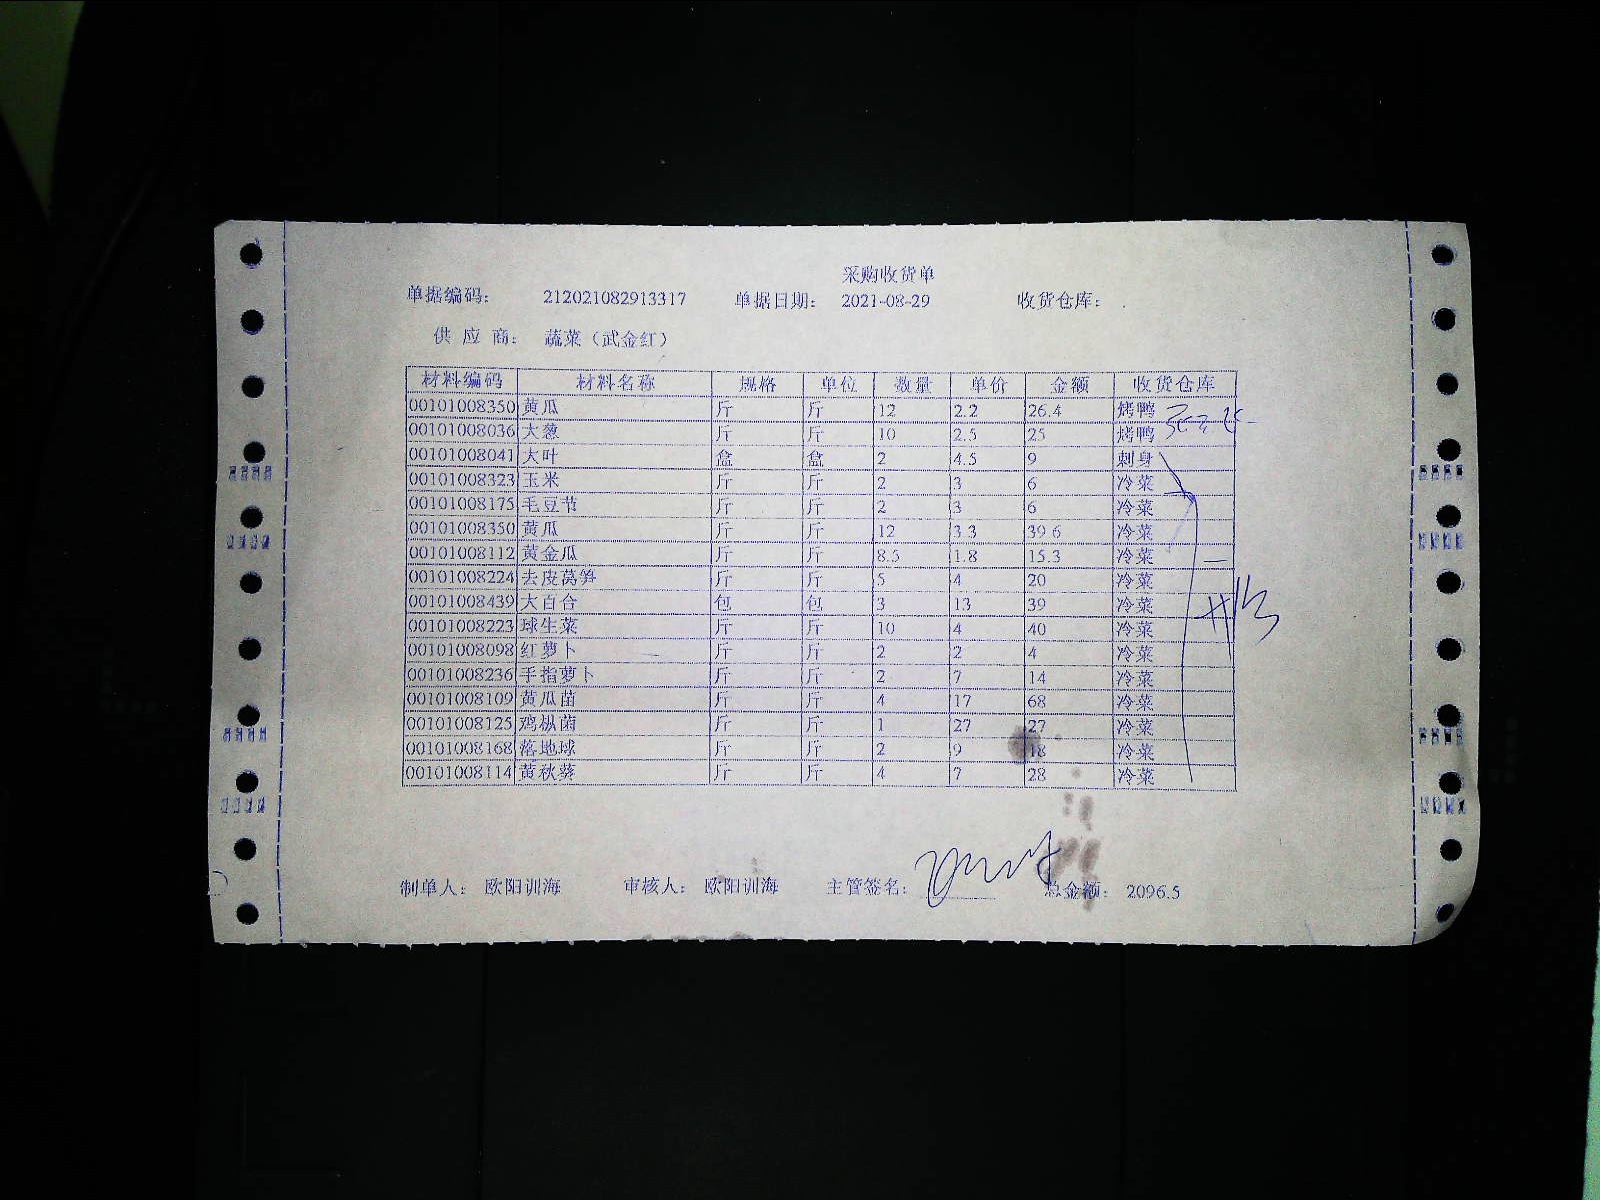 采购收货单
单据编码: 212021082913317 单据日期: 2021-08-29 收货仓库: .
供 应 商: 蔬菜（武金红）
材料编码 材料名称 规格 单位 数量 单价 金额 收货仓库
00101008350 黄瓜 斤 斤 12 2.2 26.4 烤鸭
00101008036 大葱 斤 斤 10 2.5 25 烤鸭
00101008041 大叶 盒 盒 2 4.5 9 刺身
00101008323 玉米 斤 斤 2 3 6 冷菜
00101008175 毛豆节 斤 斤 2 3 6 冷菜
00101008350 黄瓜 斤 斤 12 3.3 39.6 冷菜
00101008112 黄金瓜 斤 斤 8.5 1.8 15.3 冷菜
00101008224 去皮莴笋 斤 斤 5 4 20 冷菜
00101008439 大百合 包 包 3 13 39 冷菜
00101008223 球生菜 斤 斤 10 4 40 冷菜
00101008098 红萝卜 斤 斤 2 2 4 冷菜
00101008236 手指萝卜 斤 斤 2 7 14 冷菜
00101008109 黄瓜苗 斤 斤 4 17 68 冷菜
00101008125 鸡枞菌 斤 斤 1 27 27 冷菜
00101008168 落地球 斤 斤 2 9 18 冷菜
00101008114 黄秋葵 斤 斤 4 7 28 冷菜
制单人: 欧阳训海 审核人: 欧阳训海 主管签名: 总金额: 2096.5